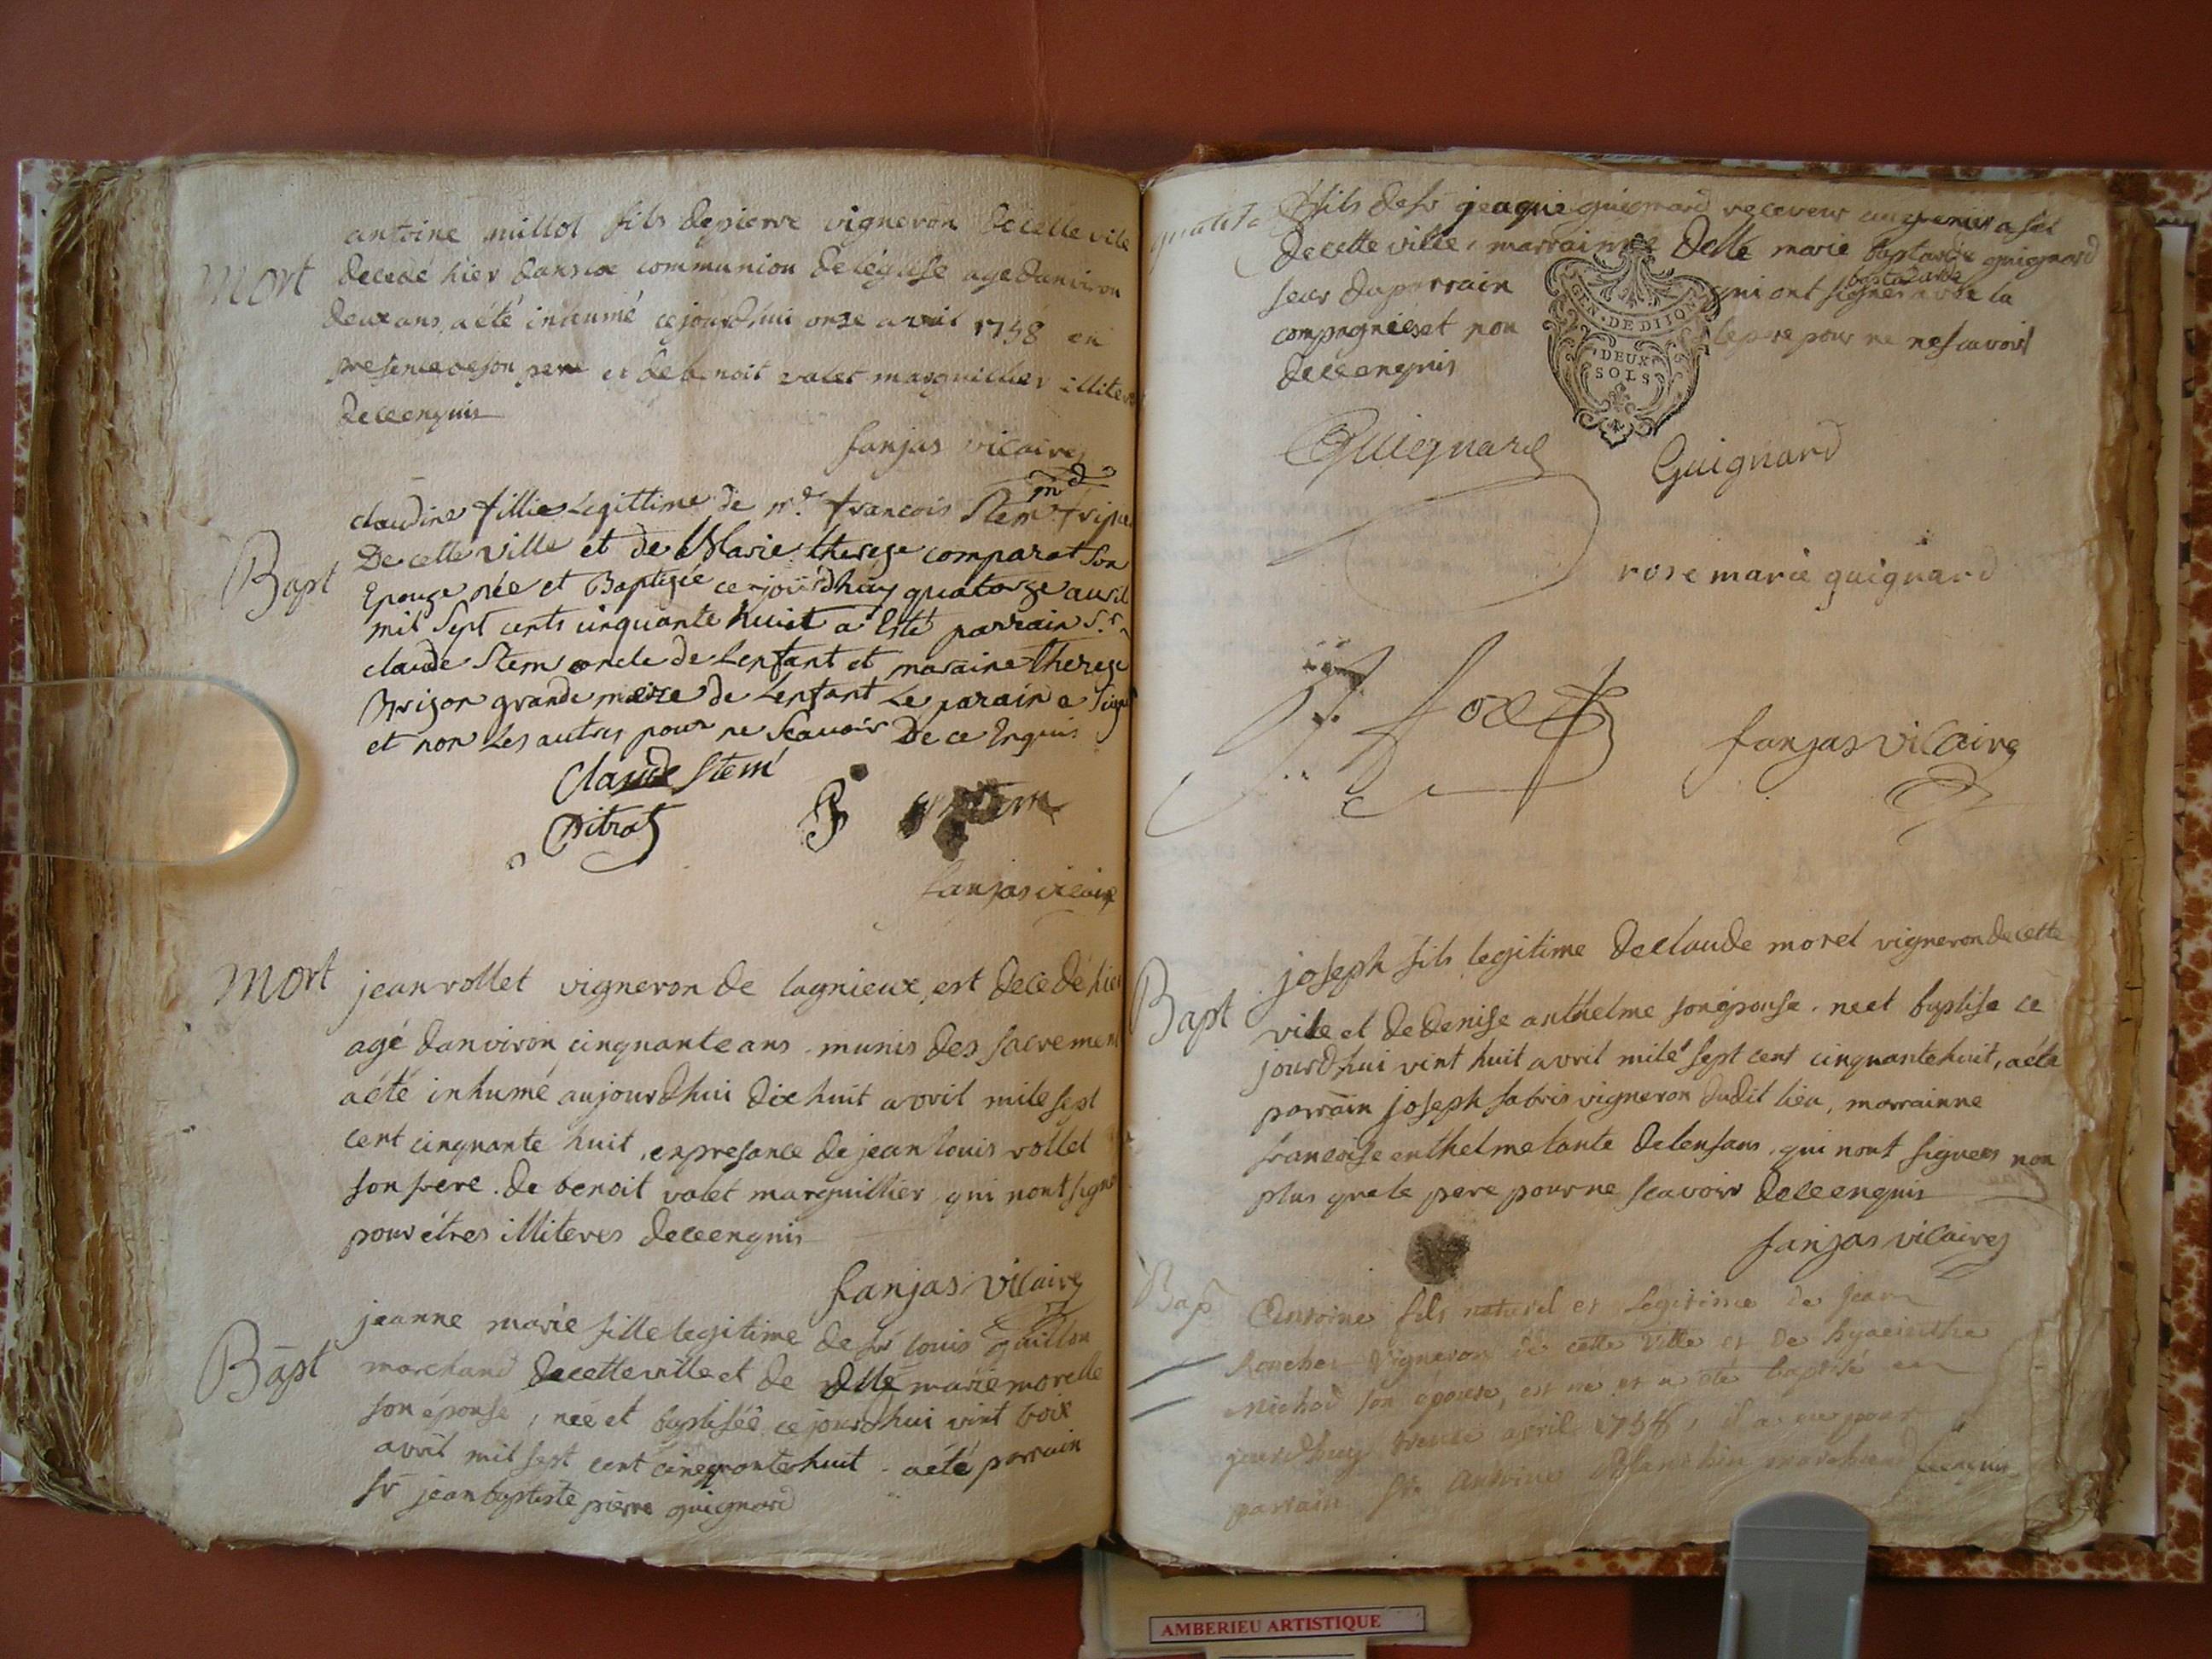 antoine millot fils de pierre vigneron de cette vile
Mort
decedé hier dans la communion de léglise agé danviron
deux ans, a été inhumé cejourdhui onze avril 1758 en
presence de son pere et de benoit valet marguillier illitere
de ce enquis
fanjas vicaire
claudine fillie Legittime de md francois Stem fripier
md
De cette ville et de Marie therese comparat Son
Bapt
Epouze née et Baptizée ce jourdhuy quatorze auril
mil Sept cents cinquante huit a Esté parrain Sr
claude Stem oncle de Lenfant et maraine therese
Brison grande meize de Lenfant Le parain a Signé
et non Les autres pour ne Scauoir De ce Enquis
Claude Stem
Ditrat
Stem
fanjas vicaire
Mort
jean rollet vigneron de lagnieux, est decedé hier
agé danviron cinquante ans munis des sacrement
a été inhumé aujourdhui dix huit avril mile sept
cent cinquante huit, en presance de jean louis rollet
son frere. de benoit valet marguillier, qui nont signé
pour étres illiteres de ce enquis
fanjas vicaire
jeanne marie fille legitime de sr louis
Bapt
marchand de cette ville et de dlle marie morelle
son épouse, née et baptisée ce jourdhui vint troix
avril mil sept cent cinquante huit a été parrain
sr jean baptiste pierre guignard
fils de sr jeaque guignard receveur au grenier a sel
de cette ville, marrainne delle marie guignard
seur du parrain qui ont signés avec la
compagnie et non le pere pour ne ne scavoir
de ce enquis
GEN. DE DIJON
DEUX
SOLS
Guignard
Guignard
rose marie guignard
fanjas vicaire
joseph fils legitime de claude morel vigneron de cette
Bapt
vile et de denise anthelme son épouse. ne et baptise ce
jourdhui vint huit avril mile sept cent cinquante huit, a été
parrain joseph fabris vigneron dudit lieu, marrainne
francoise enthelme tante de lenfans, qui nont signées non
plus que le pere pour ne scavoir de ce enquis
fanjas vicaire
Bap
Antoine fils naturel et legitime de Jean
Roucher Vigneron de cette Ville et de hyacinthe
Michod son épouse, est né et a été baptisé ce
jourdhuy trente avril 1758, il a eu pour
parrain Sr. Antoine Blanchin marchand
AMBERIEU ARTISTIQUE